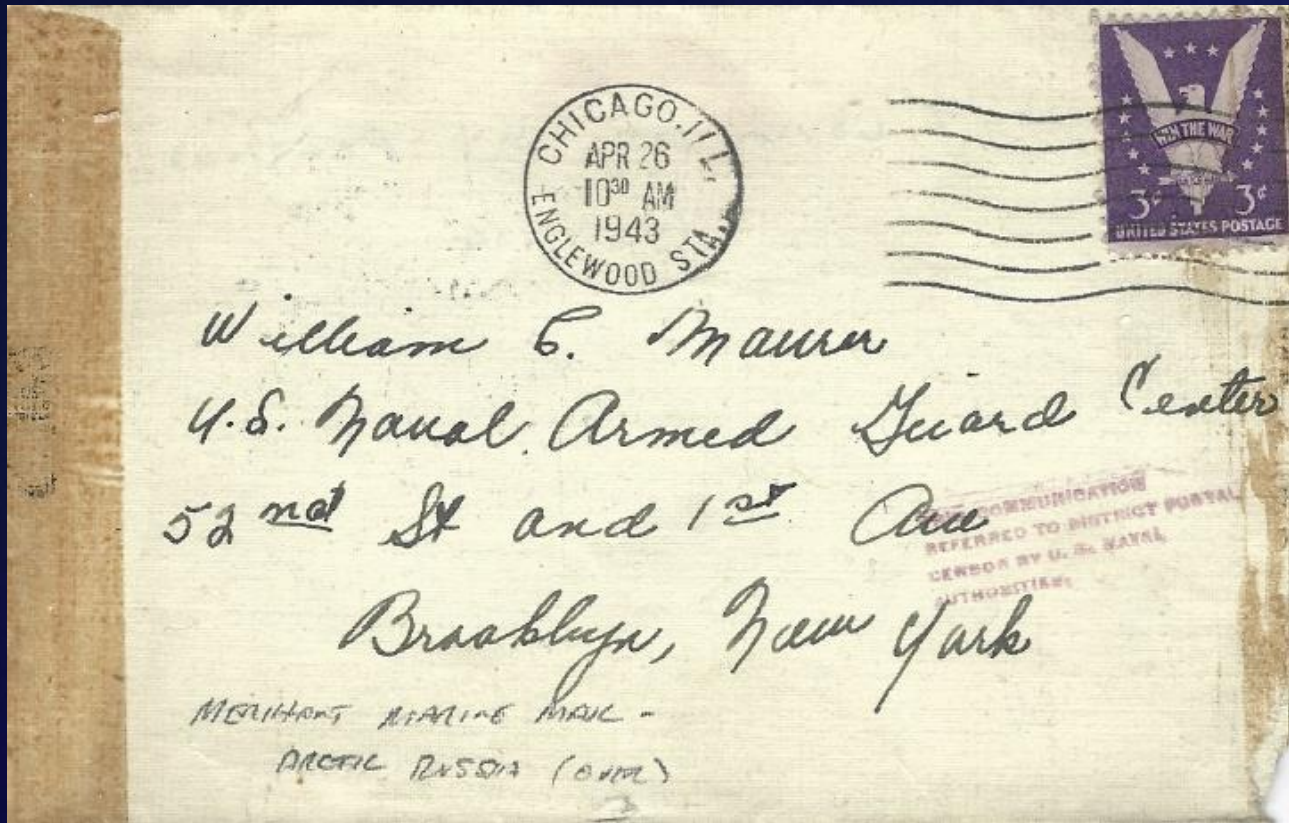 CHICAGO, ILL.
APR 26
10 30 AM
1943
ENGLEWOOD STA.
WIN THE WAR
3¢ 3¢
UNITED STATES POSTAGE
William C. Maurer
U.S. Naval Armed Guard Center
52nd St and 1st Ave
Brooklyn, New York
COMMUNICATION
REFERRED TO DISTRICT POSTAL
CENSOR BY U. S. NAVAL
AUTHORITIES
MERCHANT MARINE MAIL -
ARCTIC RUSSIA (OVER)